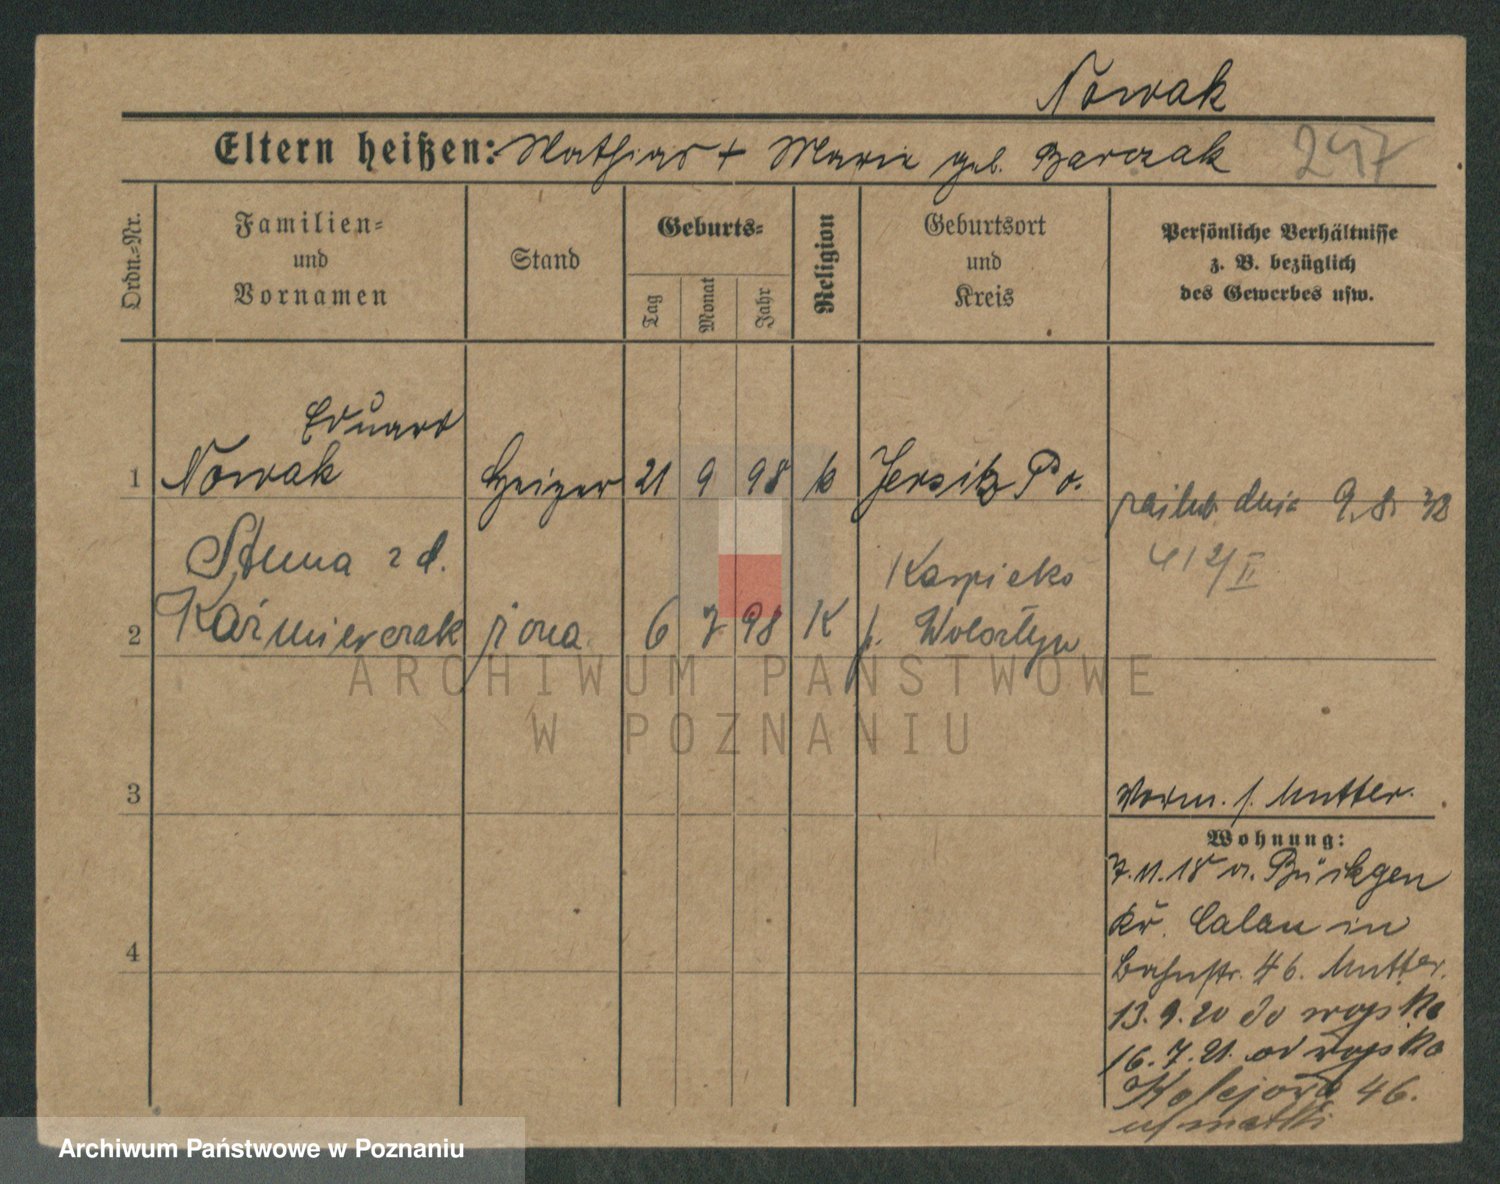 Nowak
Eltern heißen: Mathias + Marie geb. Barczak 247
Ordn.-Nr.
Familien-
und
Vornamen
Stand
Geburts-
Tag
Monat
Jahr
Religion
Geburtsort
und
Kreis
Persönliche Verhältnisse
z. B. bezüglich
des Gewerbes usw.
Eduard
1 Nowak Heizer 21 9 98 k Jersitz Po.
dnia 9.8.
412/II
z d.
2 Kaźmierczak żona 6 7 98 K p. Wolsztyn
ARCHIWUM PAŃSTWOWE
W POZNANIU
3
Vorm. s. Mutter.
Wohnung:
7.11.18 v. Bückgen
Kr. Calau in
4
Bahnstr. 46. Mutter.
13.9.20 do wojska
16.7.21. od wojska
Kolejowa 46.
u/matki
Archiwum Państwowe w Poznaniu